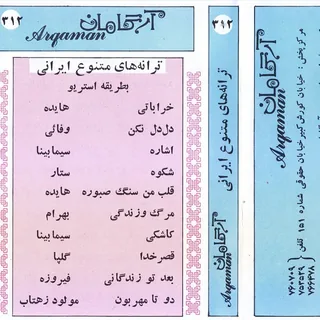 ۳۱۲
آرگامان
Arqaman
ترانه‌های متنوع ایرانی
بطریقه استریو
خراباتی هایده
دل‌دل نکن وفائی
اشاره سیما بینا
شکوه ستار
قلب من سنگ صبوره هایده
مرگ وزندگی بهرام
کاشکی سیما بینا
قصر خدا گلپا
بعد تو زندگانی فیروزه
دو تا مهربون مولود زهتاب
۳۱۲
آرگامان
Arqaman
ترانه‌های متنوع ایرانی
آرگامان
Arqaman
مرکز پخش: خیابان کورش کبیر خیابان حقوقی شماره ۱۵۱ تلفن